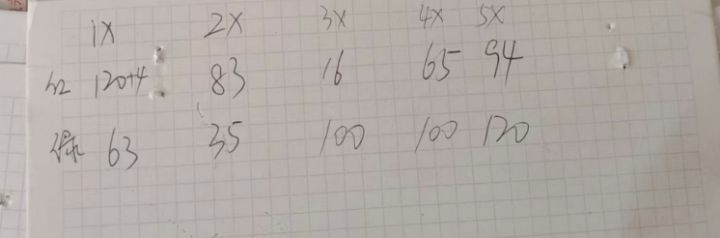 1X 2X 3X 4X 5X
红 120+4 83 16 65 94
绿 63 35 100 100 120